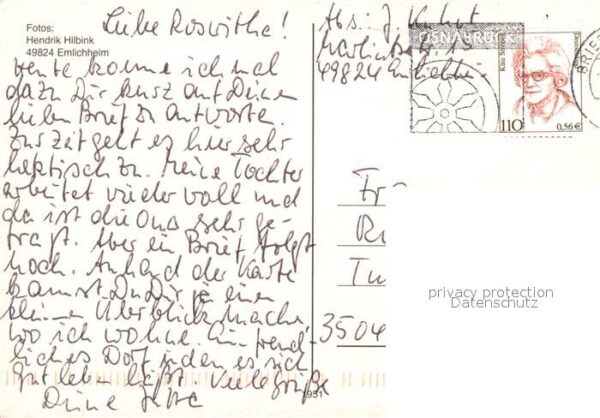 Fotos:
Hendrik Hilbink
49824 Emlichheim
Liebe Roswitha!
heute komme ich mal
dazu Dir kurz auf Deinen
lieben Brief zu antworten.
Zur Zeit geht es hier sehr
hektisch zu. Meine Tochter
arbeitet wieder voll und
da ist die Oma sehr ge-
fragt. Aber ein Brief folgt
noch. Anhand der Karte
kannst Du Dir ja einen
kleinen Überblick machen
wo ich wohne. Ein freund-
liches Dorf in dem es sich
gut leben läßt. Viele Grüße
Deine
Abs: J.
15
49824 Emlichh.
OSNABRÜCK
110
0,56 €
Fr
R
Tu
3504
privacy protection
Datenschutz